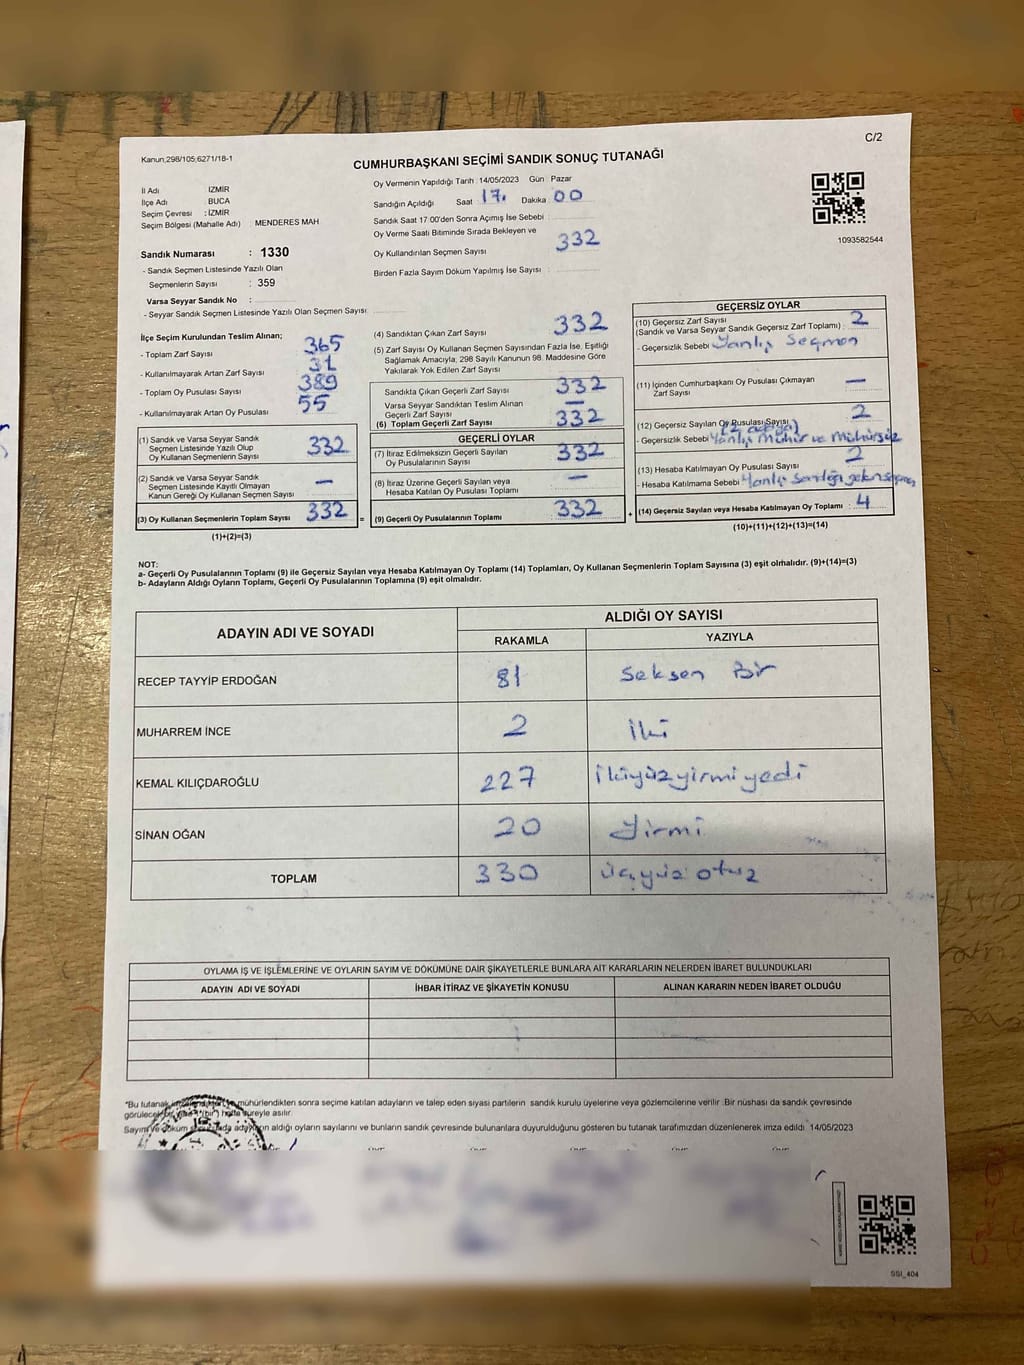 C/2
Kanun,298/105;6271/18-1
CUMHURBAŞKANI SEÇİMİ SANDIK SONUÇ TUTANAĞI
İl Adı İZMİR
İlçe Adı BUCA
Seçim Çevresi : İZMİR
Seçim Bölgesi (Mahalle Adı) MENDERES MAH
Sandık Numarası : 1330
- Sandık Seçmen Listesinde Yazılı Olan
Seçmenlerin Sayısı : 359
Varsa Seyyar Sandık No :
- Seyyar Sandık Seçmen Listesinde Yazılı Olan Seçmen Sayısı
Oy Vermenin Yapıldığı Tarih 14/05/2023 Gün Pazar
Sandığın Açıldığı Saat 17. Dakika 00
Sandık Saat 17 00'den Sonra Açımış İse Sebebi :
Oy Verme Saati Bitiminde Sırada Bekleyen ve
Oy Kullandırılan Seçmen Sayısı 332
Birden Fazla Sayım Döküm Yapılmış İse Sayısı :
1093582544
İlçe Seçim Kurulundan Teslim Alınan;
- Toplam Zarf Sayısı 365
- Kullanılmayarak Artan Zarf Sayısı 31
- Toplam Oy Pusulası Sayısı 389
- Kullanılmayarak Artan Oy Pusulası 55
(1) Sandık ve Varsa Seyyar Sandık
Seçmen Listesinde Yazılı Olup
Oy Kullanan Seçmenlerin Sayısı 332
(2) Sandık ve Varsa Seyyar Sandık
Seçmen Listesinde Kayıtlı Olmayan
Kanun Gereği Oy Kullanan Seçmen Sayısı —
(3) Oy Kullanan Seçmenlerin Toplam Sayısı 332 =
(1)+(2)=(3)
(4) Sandıktan Çıkan Zarf Sayısı 332
(5) Zarf Sayısı Oy Kullanan Seçmen Sayısından Fazla İse, Eşitliği
Sağlamak Amacıyla; 298 Sayılı Kanunun 98. Maddesine Göre
Yakılarak Yok Edilen Zarf Sayısı
Sandıkta Çıkan Geçerli Zarf Sayısı 332
Varsa Seyyar Sandıktan Teslim Alınan
Geçerli Zarf Sayısı —
(6) Toplam Geçerli Zarf Sayısı 332
GEÇERLİ OYLAR
(7) İtiraz Edilmeksizin Geçerli Sayılan
Oy Pusulalarının Sayısı 332
(8) İtiraz Üzerine Geçerli Sayılan veya
Hesaba Katılan Oy Pusulası Toplamı —
(9) Geçerli Oy Pusulalarının Toplamı 332 +
GEÇERSİZ OYLAR
(10) Geçersiz Zarf Sayısı
(Sandık ve Varsa Seyyar Sandık Geçersiz Zarf Toplamı) : 2
- Geçersizlik Sebebi Yanlış Seçmen
(11) İçinden Cumhurbaşkanı Oy Pusulası Çıkmayan
Zarf Sayısı —
(12) Geçersiz Sayılan Oy Pusulası Sayısı 2
- Geçersizlik Sebebi Yanlış Mühür ve Mühürsüz
(13) Hesaba Katılmayan Oy Pusulası Sayısı 2
- Hesaba Katılmama Sebebi Yanlış Sandığa gelen seçmen
(14) Geçersiz Sayılan veya Hesaba Katılmayan Oy Toplamı : 4
(10)+(11)+(12)+(13)=(14)
NOT:
a- Geçerli Oy Pusulalarının Toplamı (9) ile Geçersiz Sayılan veya Hesaba Katılmayan Oy Toplamı (14) Toplamları, Oy Kullanan Seçmenlerin Toplam Sayısına (3) eşit olmalıdır. (9)+(14)=(3)
b- Adayların Aldığı Oyların Toplamı, Geçerli Oy Pusulalarının Toplamına (9) eşit olmalıdır.
ADAYIN ADI VE SOYADI ALDIĞI OY SAYISI
RAKAMLA YAZIYLA
RECEP TAYYİP ERDOĞAN 81 Seksen Bir
MUHARREM İNCE 2 İki
KEMAL KILIÇDAROĞLU 227 ikiyüzyirmiyedi
SİNAN OĞAN 20 Yirmi
TOPLAM 330 üçyüz otuz
OYLAMA İŞ VE İŞLEMLERİNE VE OYLARIN SAYIM VE DÖKÜMÜNE DAİR ŞİKAYETLERLE BUNLARA AİT KARARLARIN NELERDEN İBARET BULUNDUKLARI
ADAYIN ADI VE SOYADI İHBAR İTİRAZ VE ŞİKAYETİN KONUSU ALINAN KARARIN NEDEN İBARET OLDUĞU
*Bu tutanak mühürlendikten sonra seçime katılan adayların ve talep eden siyasi partilerin sandık kurulu üyelerine veya gözlemcilerine verilir. Bir nüshası da sandık çevresinde
görülecek (bir) hafta süreyle asılır.
Sayım ve döküm aldığı oyların sayılarını ve bunların sandık çevresinde bulunanlara duyurulduğunu gösteren bu tutanak tarafımızdan düzenlenerek imza edildi. 14/05/2023
SSI_404